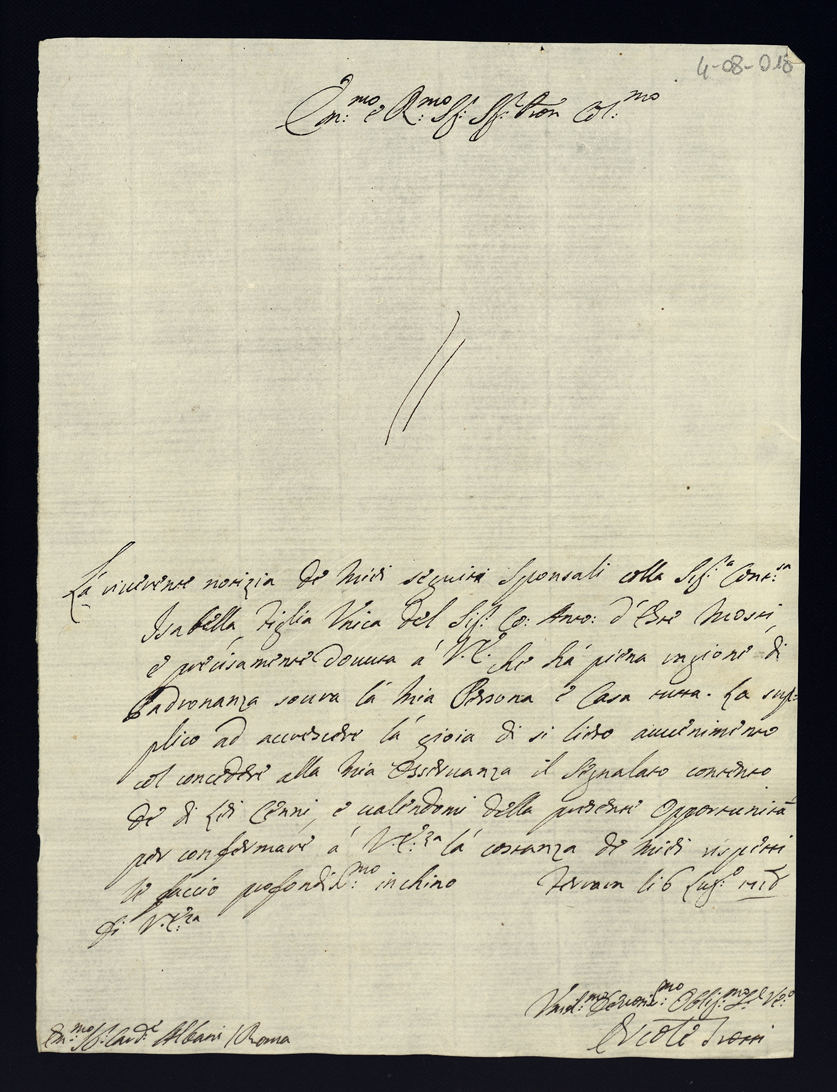 4-08-018
Em:mo e R:mo Sig:r Sig:r Pron Col:mo
La riverente notizia de miei seguiti Sponsali colla Sig:a Cont:sa
Isabella figlia Unica del Sig:r Co: Anto: d'Este Mosti,
è precisamente dovuta à V.E. che hà piena ragione di
Padronanza sovra la mia Persona e Casa tutta. La sup-
plico ad accrescere la gioia di si lieto avvenimento
col concedere alla mia Osservanza il segnalato contento
de di Lei Cenni, e valendomi della presente Opportunità
per confermare à V.E:za la costanza de miei rispetti
le faccio profondis:mo inchino Ferrara li 6 Lug:o
di V.E:za
Umil:mo Devotis:mo Oblig:mo
Em:mo Sig:r Card:le Albani / Roma
Ercole Trotti